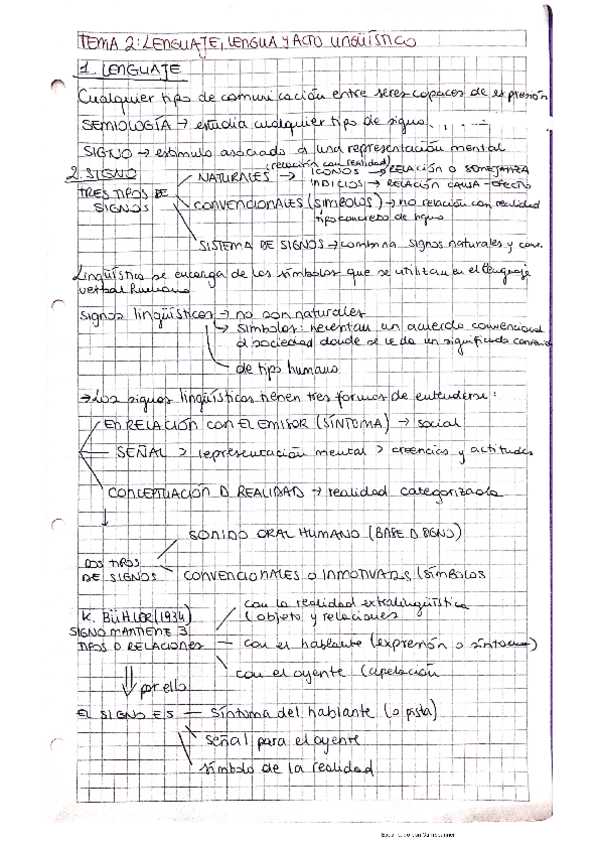 TEMA 2: LENGUAJE, LENGUA Y ACTO LINGÜÍSTICO
1. LENGUAJE
Cualquier tipo de comunicación entre seres capaces de expresión
SEMIOLOGÍA → estudia cualquier tipo de signo
SIGNO → estímulo asociado a una representación mental
2. SIGNO
TRES TIPOS DE SIGNOS
(relación con realidad)
NATURALES → ICONOS → RELACIÓN O SEMEJANZA
INDICIOS → RELACIÓN CAUSA-EFECTO
CONVENCIONALES (SÍMBOLOS) → no relación con realidad
tipo concreto de signo
SISTEMA DE SIGNOS → combina signos naturales y con.
Lingüística se encarga de los símbolos que se utilizan en el lenguaje
verbal humano
signos lingüísticos → no son naturales
→ símbolos: necesitan un acuerdo convencional
d sociedad donde se le da un significado
de tipo humano
→ Los signos lingüísticos tienen tres formas de entenderse:
EN RELACIÓN CON EL EMISOR (SÍNTOMA) → social
SEÑAL > representación mental > creencias y actitudes
CONCEPTUACIÓN D REALIDAD → realidad categorizada
SONIDO ORAL HUMANO (BASE D SIGNO)
DOS TIPOS
DE SIGNOS
CONVENCIONALES O INMOTIVADAS (SÍMBOLOS
K. BÜHLER (1934)
SIGNO MANTIENE 3
TIPOS D RELACIONES
con la realidad extralingüística
(objeto y relaciones
con el hablante (expresión o síntoma)
con el oyente (apelación
por ello
EL SIGNO ES — síntoma del hablante (o pista)
señal para el oyente
símbolo de la realidad